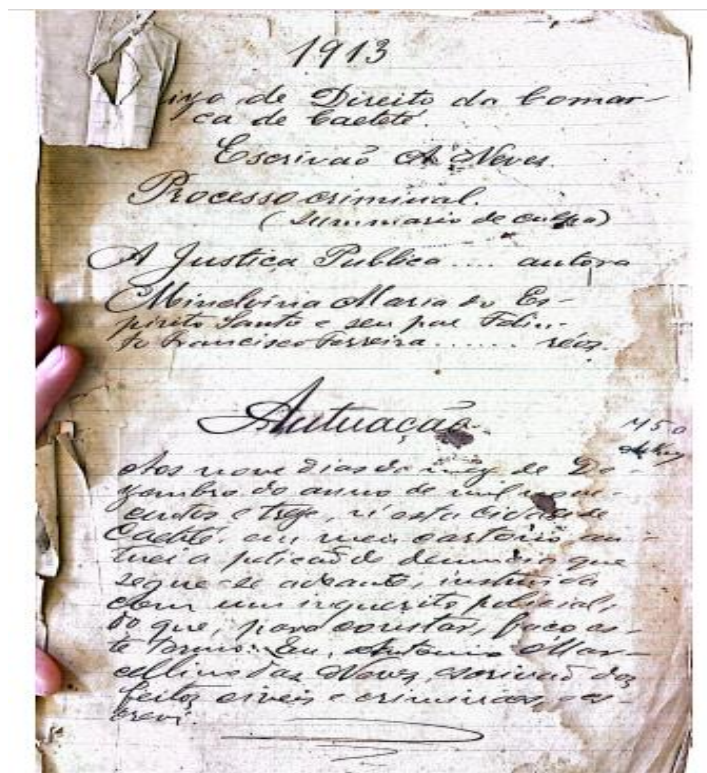 1913
de Direito da Comar-
ca de Caeteté.
Escrivão A Neves.
Processo criminal.
(Summario de culpa)
A Justiça Publica .... autora
Minelvina Maria do Es-
pirito Santo e seu pae Felin-
to Francisco Ferreira ...... réos.
Autuação
Aos nove dias do mez de De-
zembro do anno de mil nove-
centos e treze, n'esta cidade de
Caeteté, em meu cartorio, au-
tuei a petição de denuncia que
segue-se adeante, instruida
com um inquerito policial;
do que, para constar, faço es-
te termo. Eu, Antonio Mar-
cellino das Neves, escrivão dos
feitos civeis e criminaes, es-
crevi.